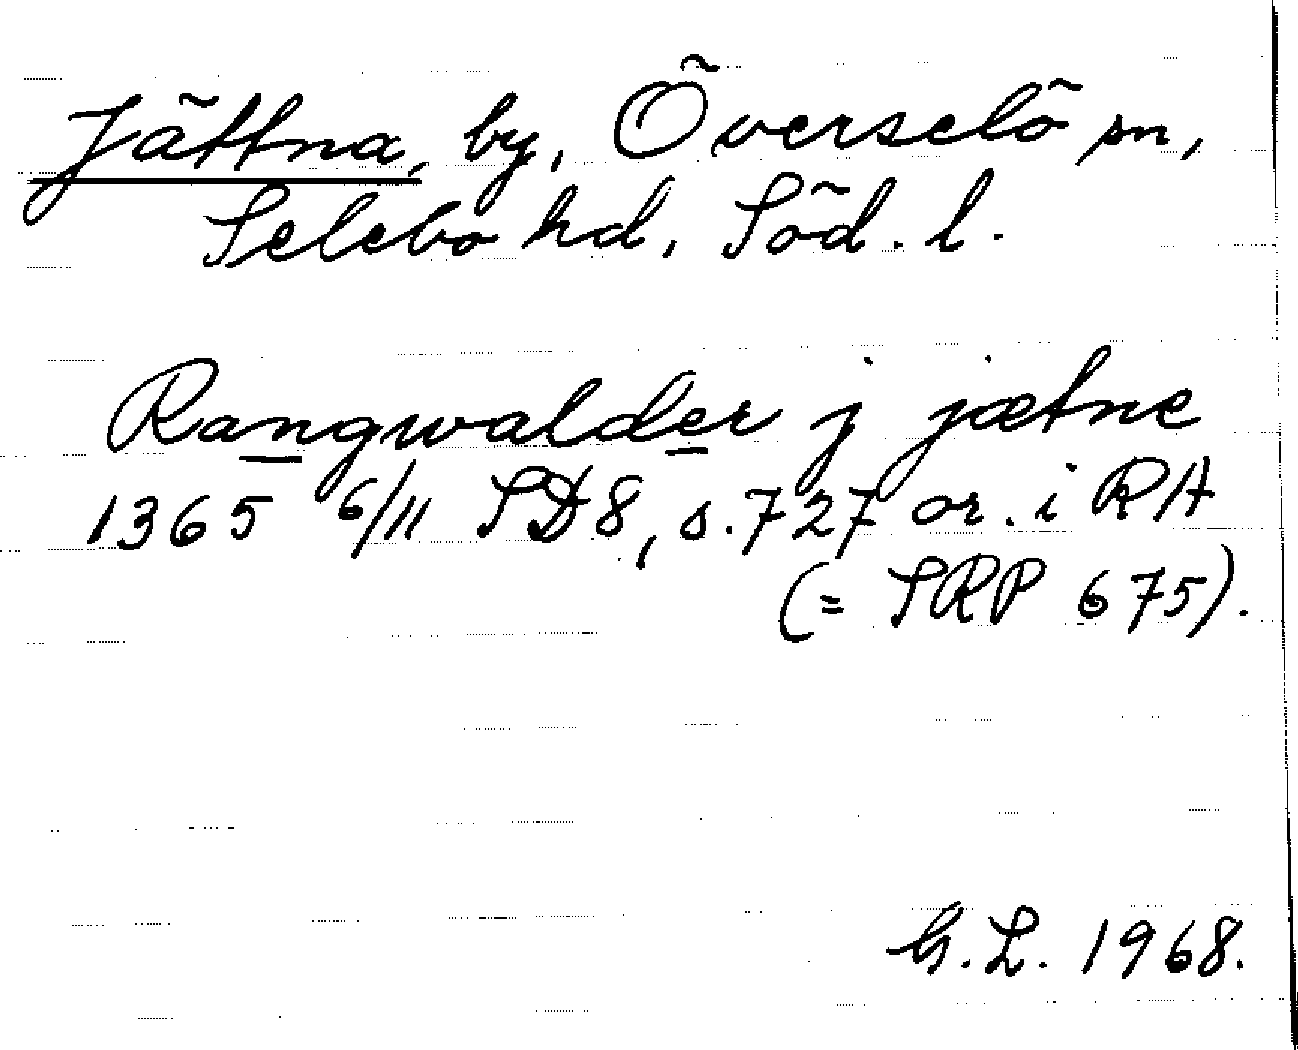 Jättna, by, Överselö sn,
Selebo hd, Söd. l.
Rangwalder j jætne
1365 6/11 SD8, s.727 or. i RA
(= SRP 675).
G.L. 1968.